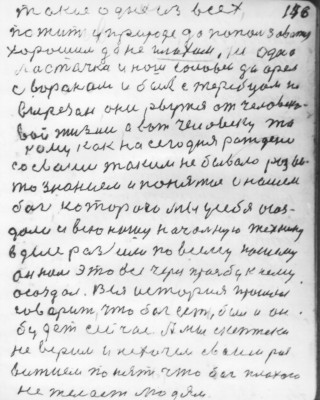 такое одно из всех, 156
по жит у природе да попользоват
хорошим да не плохим, не одно
ласточка и нош соловей да орел
с воронам и был с
они рвутся от человечи-
вой жизни а вот человеку та
кому как на сегодня рождени
со своим таким не бывало разви
то знанием и понятие о нашем
бог которого мы у себя созда
дали и всю нашу научную технику
в деле по всему нашему
он нам это все через прозьбу к нему
создал. Вся история прошла
говорит, что бог есть, был и он
будет сейчас А мы скептеки
не верим и не хочем своим раз
витием понят что бог плохого
не желает людям.